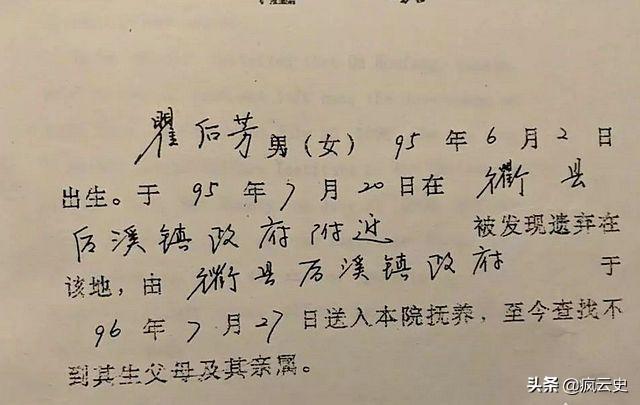 瞿后芳男(女) 95年6月2日
出生。于95年7月20日在 衢县
后溪镇政府附近 被发现遗弃在
该地，由 衢县后溪镇政府 于
96年7月27日送入本院抚养，至今查找不
到其生父母及其亲属。
头条 @疯云史